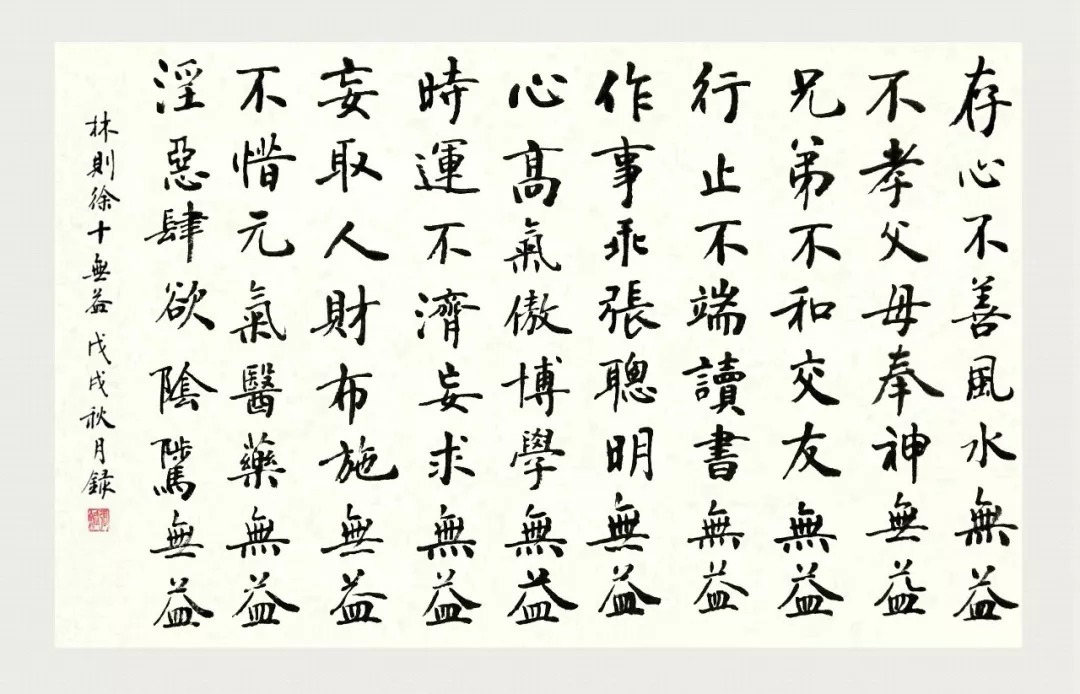 存心不善風水無益
不孝父母奉神無益
兄弟不和交友無益
行止不端讀書無益
作事乖張聰明無益
心高氣傲博學無益
時運不濟妄求無益
妄取人財布施無益
不惜元氣醫藥無益
淫惡肆欲陰騭無益
林則徐十無益 戊戌秋月錄